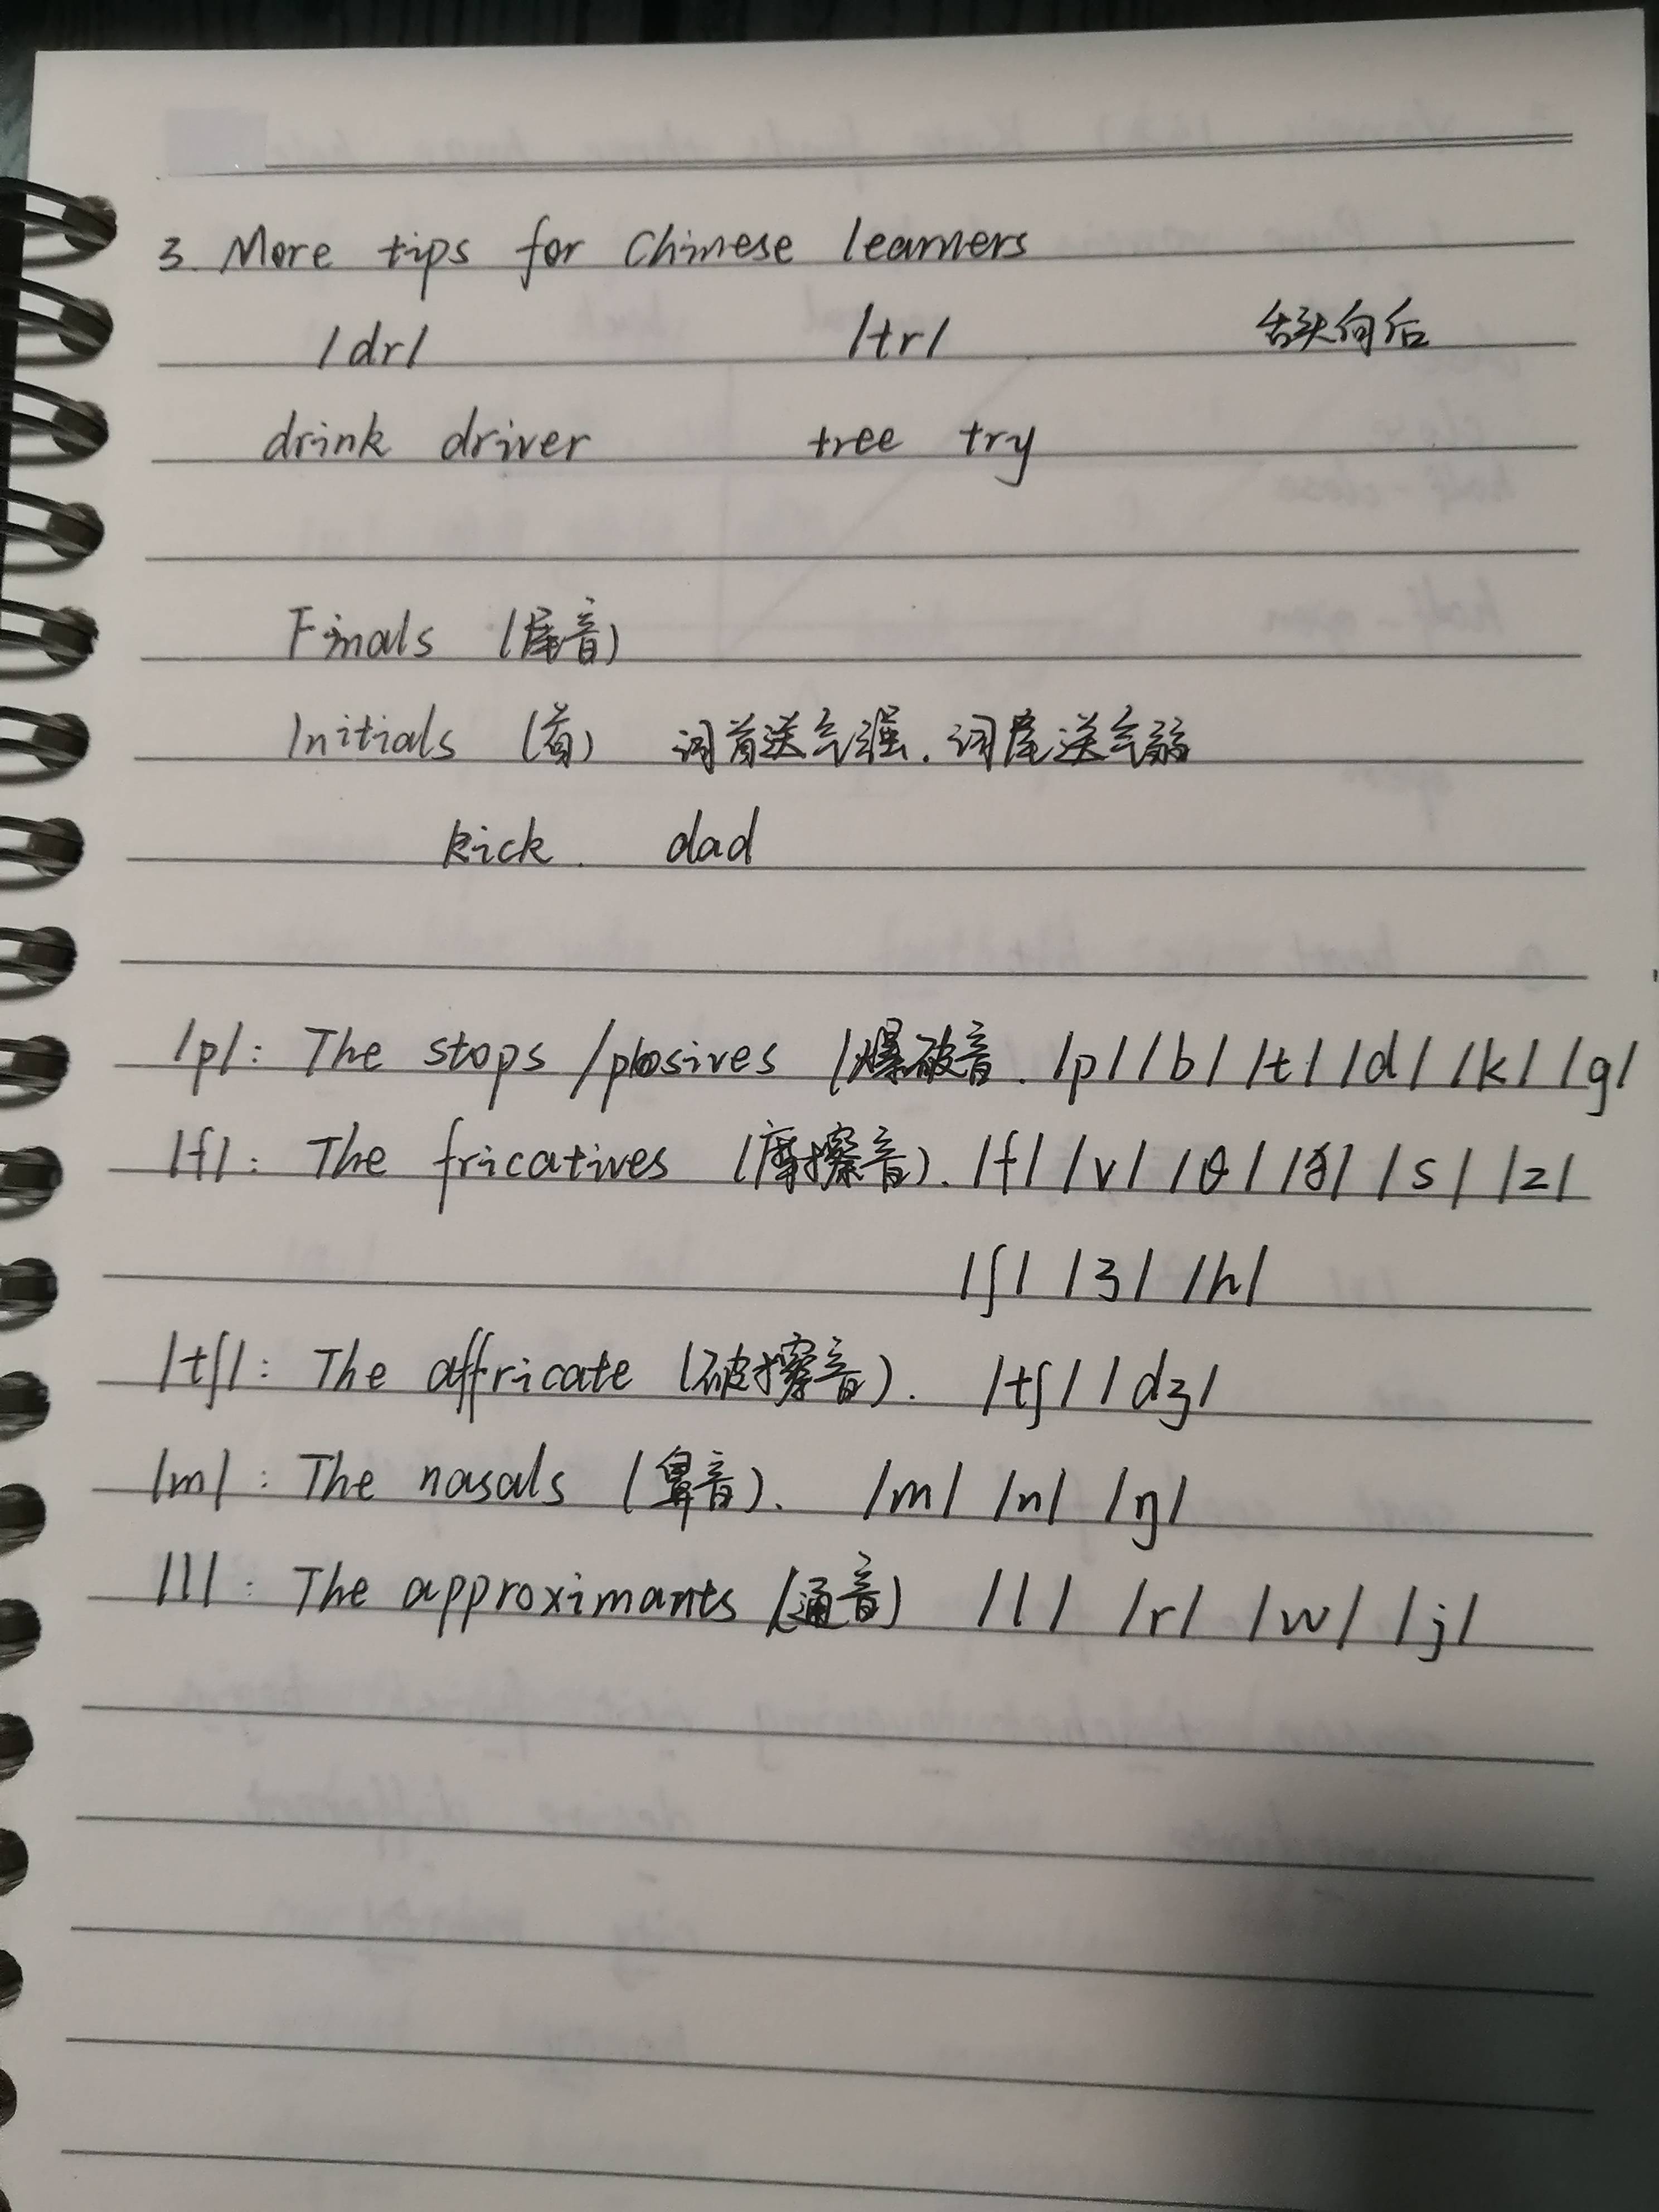 3. More tips for Chinese learners
/dr/ /tr/ 舌头向后
drink driver tree try
Finals (尾音)
Initials (首) 词首送气强.词尾送气弱
kick. dad
/p/: The stops /plosives (爆破音. /p/ /b/ /t/ /d/ /k/ /g/
/f/: The fricatives (摩擦音). /f/ /v/ /θ/ /ð/ /s/ /z/
/ʃ/ /ʒ/ /h/
/tʃ/: The affricate (破擦音). /tʃ/ /dʒ/
/m/: The nasals (鼻音). /m/ /n/ /ŋ/
/l/: The approximants (通音) /l/ /r/ /w/ /j/